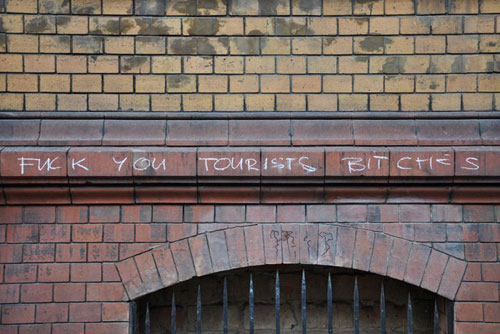 FUCK YOU TOURISTS BITCHES